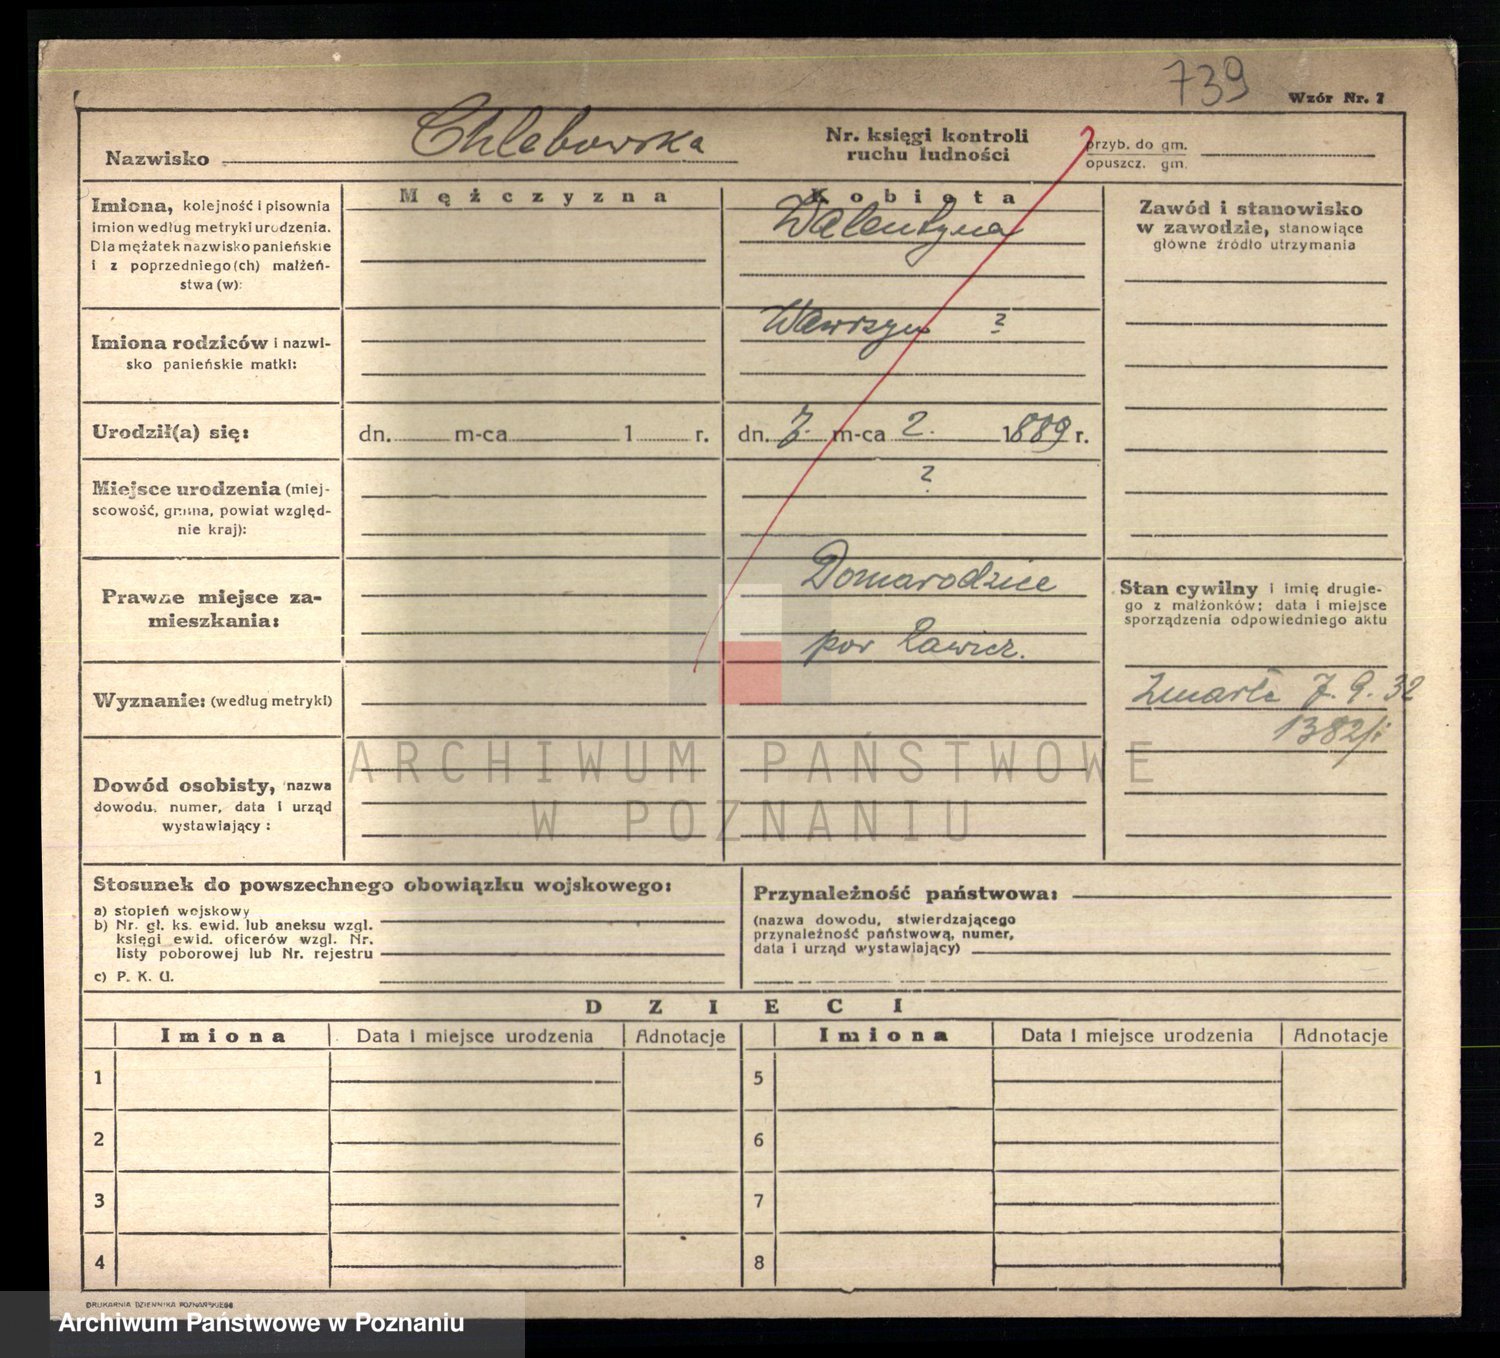 739
Wzór Nr. 7
Nazwisko Chlebowska
Nr. księgi kontroli
ruchu ludności
przyb. do gm.
opuszcz. gm.
Mężczyzna
Kobieta
Imiona, kolejność i pisownia
imion według metryki urodzenia.
Dla mężatek nazwisko panieńskie
i z poprzedniego(ch) małżeń-
stwa (w):
Walentyna
Zawód i stanowisko
w zawodzie, stanowiące
główne źródło utrzymania
Imiona rodziców i nazwi-
sko panieńskie matki:
Wawrzyn ?
Urodził(a) się:
dn. m-ca 1 r.
dn. 7. m-ca 2. 1889 r.
Miejsce urodzenia (miej-
scowość, gmina, powiat względ-
nie kraj):
?
Prawne miejsce za-
mieszkania:
Domarodzice
pow Rawicz.
Stan cywilny i imię drugie-
go z małżonków; data i miejsce
sporządzenia odpowiedniego aktu
Zmarła 7. 9. 32
1382/i
Wyznanie: (według metryki)
Dowód osobisty, nazwa
dowodu, numer, data i urząd
wystawiający:
ARCHIWUM PAŃSTWOWE
W POZNANIU
Stosunek do powszechnego obowiązku wojskowego:
a) stopień wojskowy
b) Nr. gł. ks. ewid. lub aneksu wzgl.
księgi ewid. oficerów wzgl. Nr.
listy poborowej lub Nr. rejestru
c) P. K. U.
Przynależność państwowa:
(nazwa dowodu, stwierdzającego
przynależność państwową, numer,
data i urząd wystawiający)
DZIECI
Imiona Data i miejsce urodzenia Adnotacje Imiona Data i miejsce urodzenia Adnotacje
1 5
2 6
3 7
4 8
DRUKARNIA DZIENNIKA POZNAŃSKIEGO
Archiwum Państwowe w Poznaniu